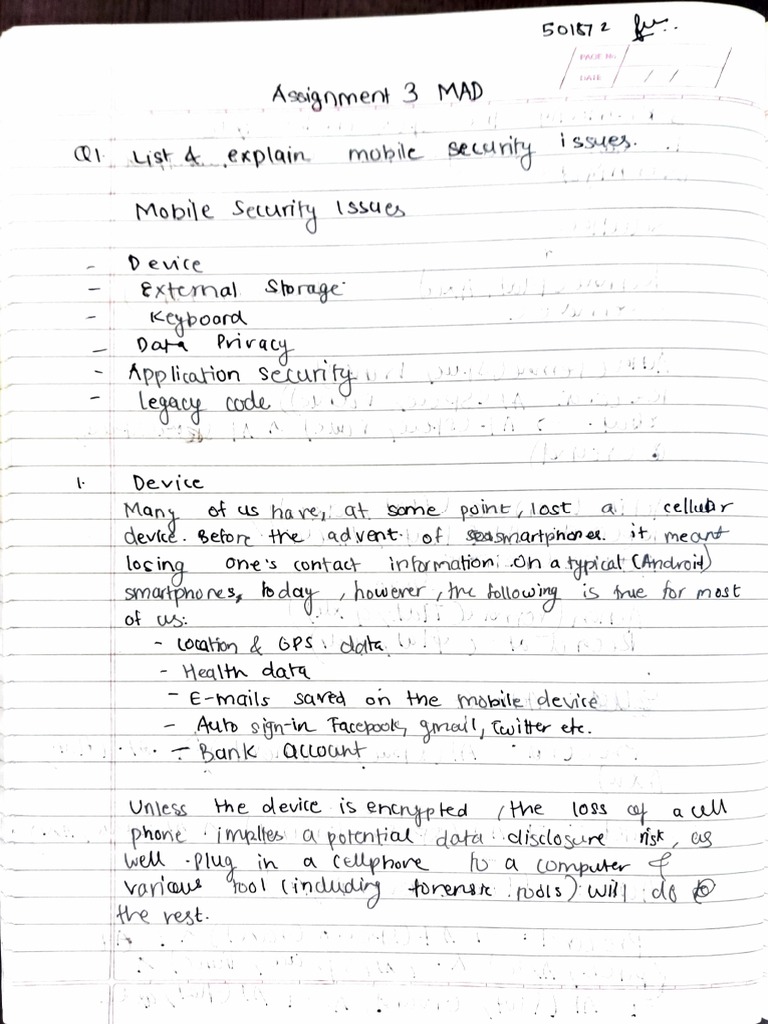 501872
PAGE No.
DATE / /
Assignment 3 MAD
Q1. List & explain mobile security issues.
Mobile Security Issues
- Device
- External Storage
- Keyboard
- Data Privacy
- Application security
- legacy code
1. Device
Many of us have, at some point, lost a cellular
device. Before the advent of smartphones. it meant
losing one's contact information. On a typical (Android)
smartphones, today, however, the following is true for most
of us:
- Location & GPS data
- Health data
- E-mails saved on the mobile device
- Auto sign-in Facebook, gmail, Twitter etc.
- Bank account
Unless the device is encrypted, the loss of a cell
phone implies a potential data disclosure risk, as
well. plug in a cellphone to a computer &
various tool (including forensic tools) will do
the rest.